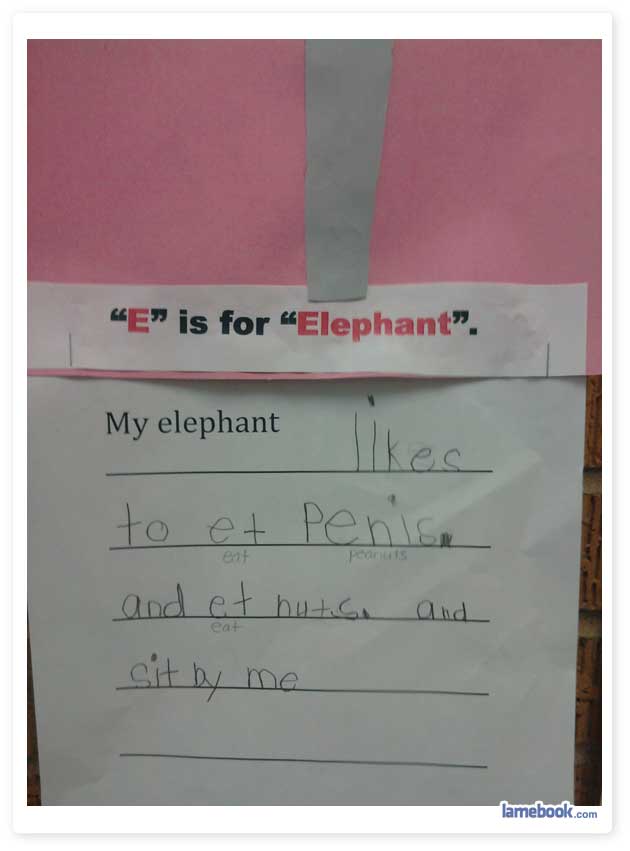 “E” is for “Elephant”.
My elephant likes
to et Penis.
eat peanuts
and et nuts. and
eat
sit by me
lamebook.com